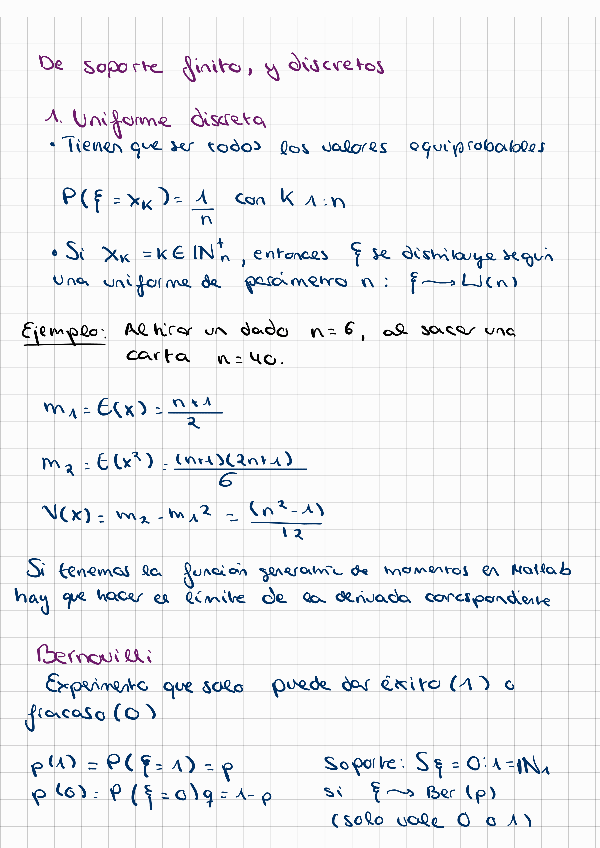 De soporte finito, y discretos
1. Uniforme discreta
• Tienen que ser todos los valores equiprobables
P(ξ = x_K) = 1/n con K 1:n
• Si x_K = K ∈ IN_n^+, entonces ξ se distribuye según
una uniforme de parámetro n: ξ → U(n)
Ejemplo: Al tirar un dado n=6, al sacar una
carta n=40.
m_1 = E(x) = (n+1)/2
m_2 = E(x²) = (n+1)(2n+1)/6
V(x) = m_2 - m_1² = (n²-1)/12
Si tenemos la función generatriz de momentos en Matlab
hay que hacer el límite de la derivada correspondiente
Bernouilli
Experimento que solo puede dar éxito (1) o
fracaso (0)
p(1) = P(ξ=1) = p
p(0) = P(ξ=0) q = 1-p
Soporte: S_ξ = 0:1 = IN_1
si ξ → Ber(p)
(solo vale 0 o 1)